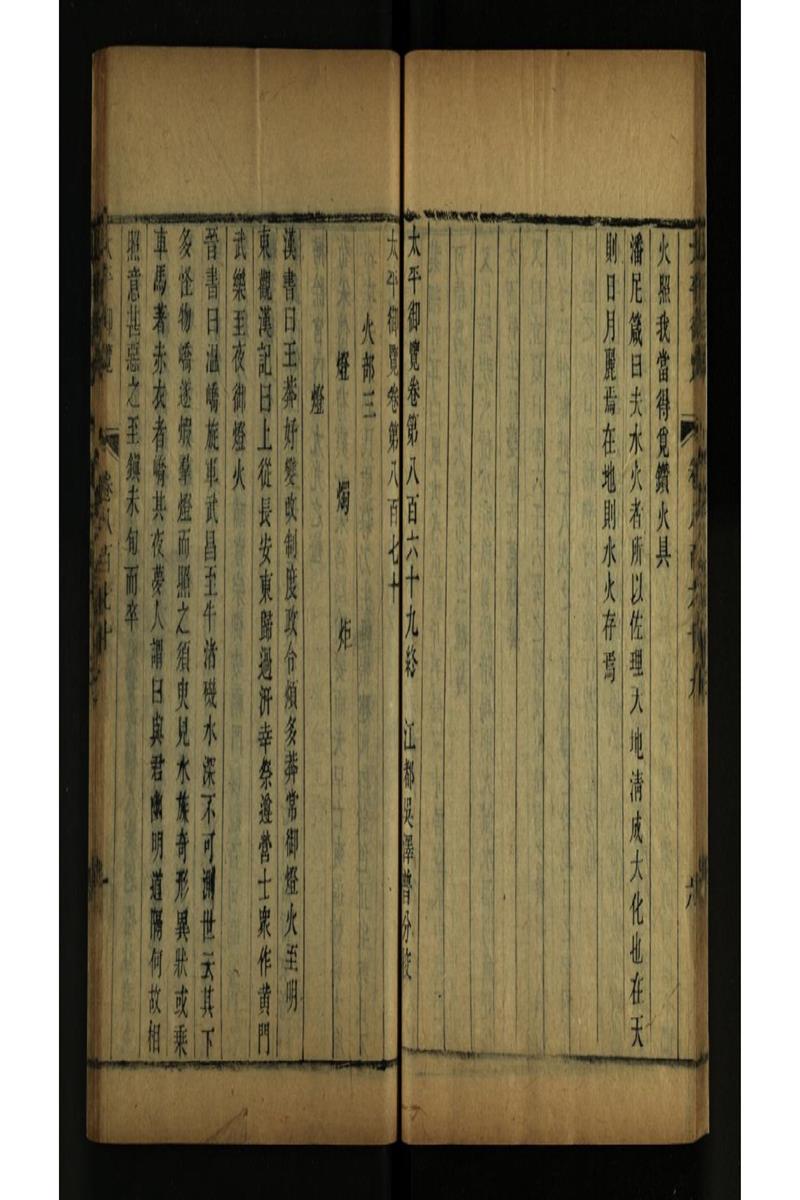 火照我當得覓鑽火具
潘尼箴曰夫水火者所以佐理天地淸成大化也在天
則日月麗焉在地則水火存焉
太平御覽卷第八百六十九終　江都吳澤普分校
太平御覽卷第八百七十
火部三
燈　燭　炬
燈
漢書曰王莽好變改制度政令煩多莽常御燈火至明
東觀漢記曰上從長安東歸過汧幸祭遵營士衆作黃門
武樂至夜御燈火
晉書曰温嶠旋軍武昌至牛渚磯水深不可測世云其下
多怪物嶠遂燬羣燈而照之須臾見水族奇形異狀或乘
車馬著赤衣者嶠其夜夢人謂曰與君幽明道隔何故相
照意甚惡之至鎭未旬而卒
卷八百七十